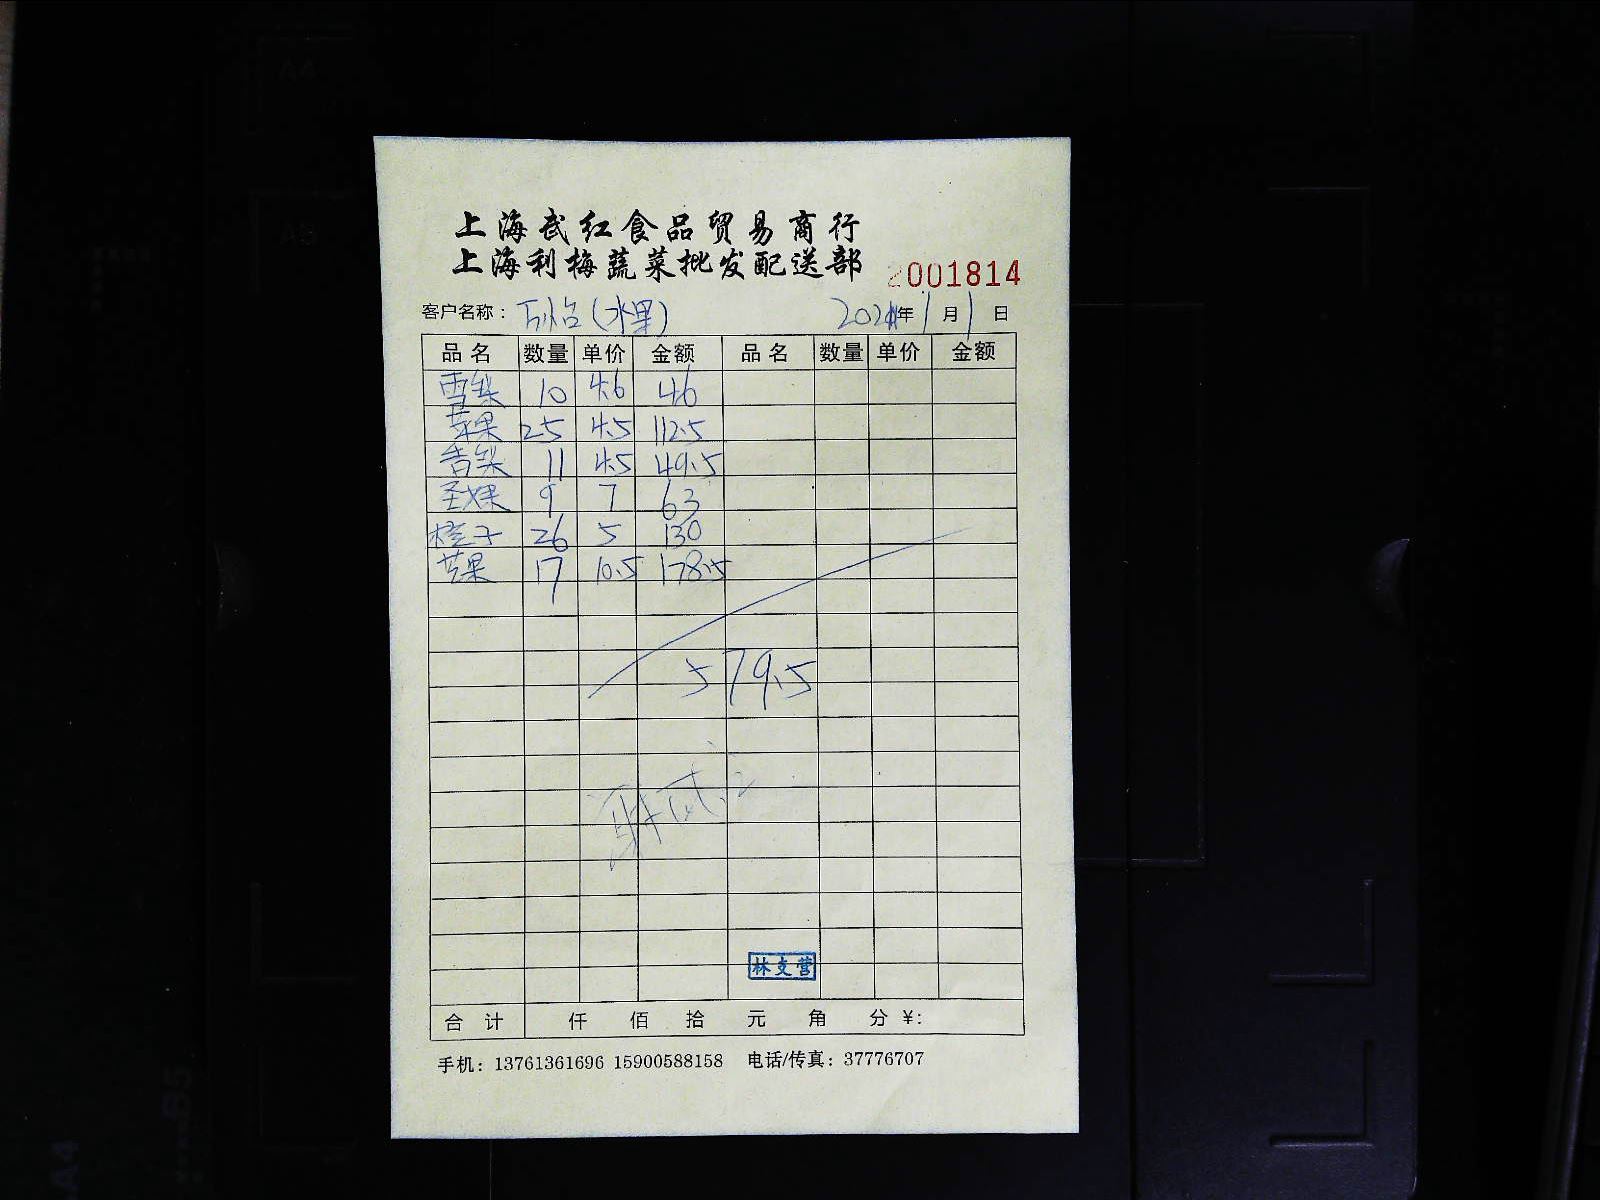 上海武红食品贸易商行
上海利梅蔬菜批发配送部
2001814
客户名称： 万怡(水果) 2021年1月1日
品名 数量 单价 金额 品名 数量 单价 金额
雪梨 10 4.6 46
苹果 25 4.5 112.5
香梨 11 4.5 49.5
圣女果 9 7 63
橙子 26 5 130
芒果 17 10.5 178.5
579.5
林支营
合计 仟 佰 拾 元 角 分 ¥:
手机：13761361696 15900588158 电话/传真：37776707